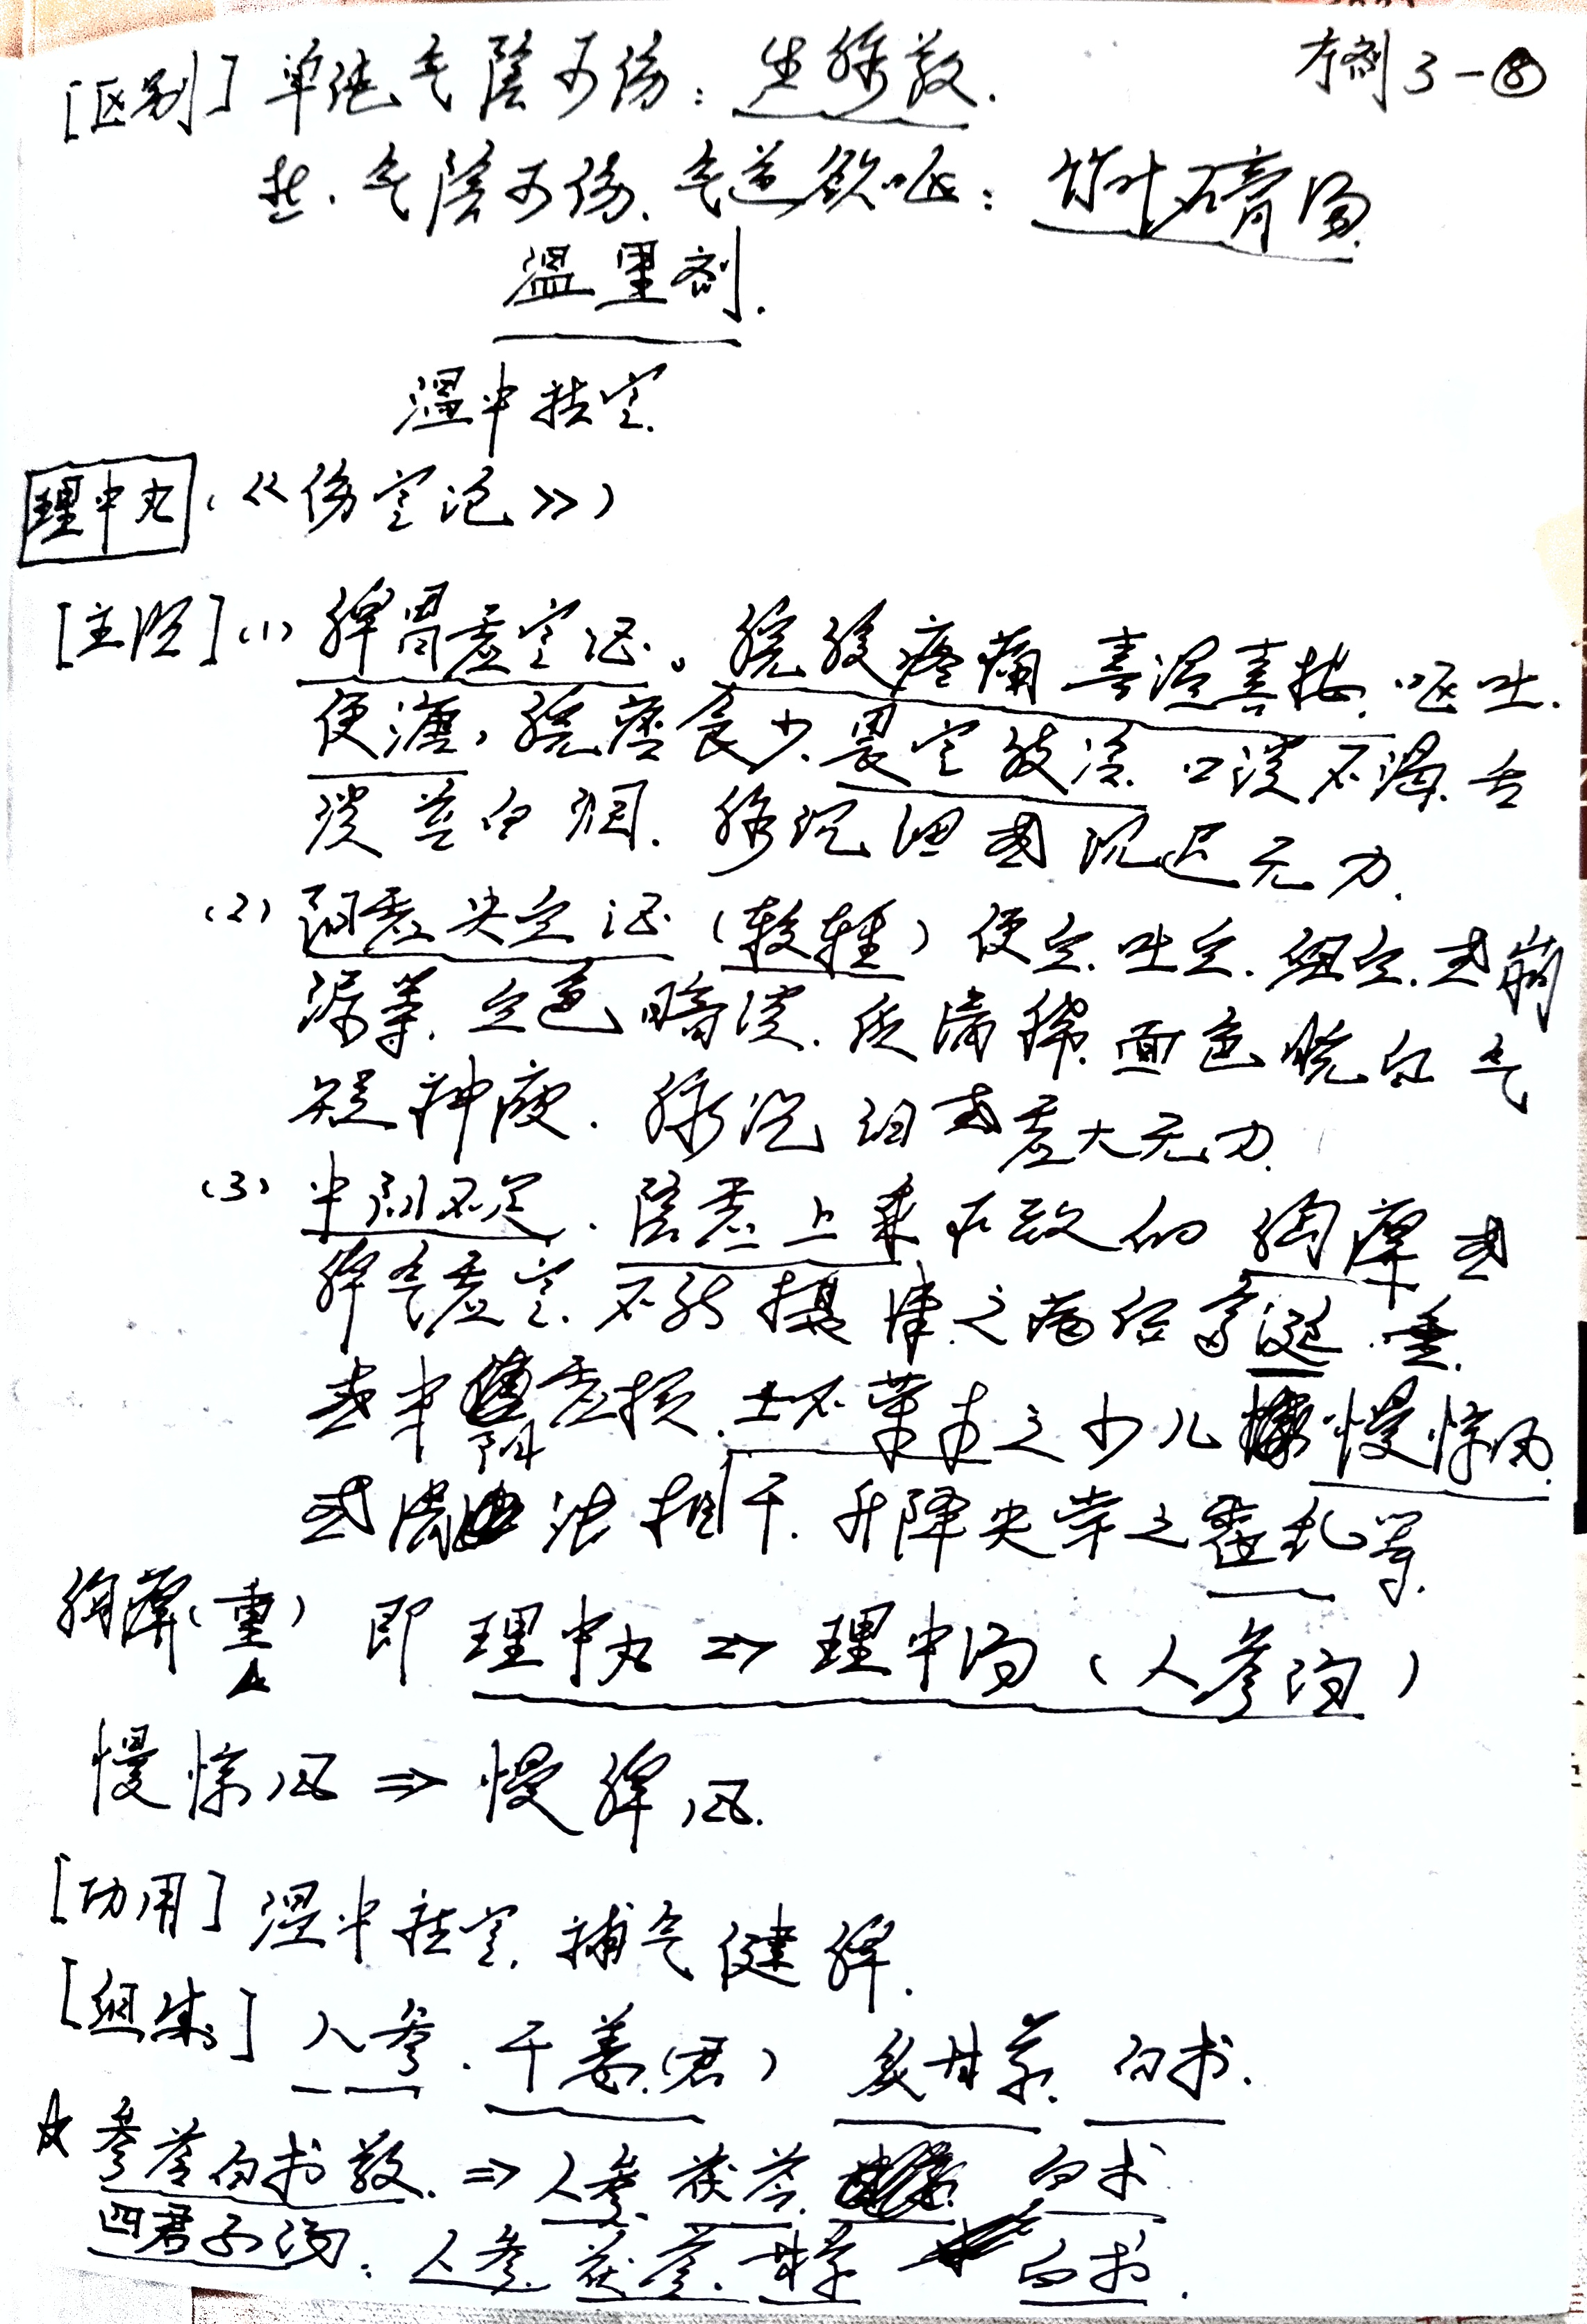 方剂3-⑧
[区别] 单纯气阴两伤：生脉散.
热、气阴两伤、气逆欲呕：竹叶石膏汤.
温里剂.
温中祛寒.
理中丸（《伤寒论》）
[主治](1) 脾胃虚寒证。脘腹疼痛 喜温喜按、呕吐.
便溏，脘痞食少、畏寒肢冷. 口淡不渴、舌
淡苔白润. 脉沉细或沉迟无力.
(2) 阳虚失血证（较轻）便血、吐血、衄血、或崩
漏等、血色暗淡、质清稀、面色㿠白 气
短神疲、脉沉细或虚大无力.
(3) 中阳不足、阴寒上乘所致的 胸痹 或
脾气虚寒、不能摄津之病后多涎唾.
或中阳虚损、土不荣木之少儿慢惊风.
或清浊相干、升降失常之霍乱等.
胸痹（重） 即 理中丸 => 理中汤（人参汤）
慢惊风 => 慢脾风.
[功用] 温中祛寒, 补气健脾.
[组成] 人参、干姜（君） 炙甘草、白术.
☆ 参苓白术散 => 人参、茯苓、白术
四君子汤：人参、茯苓、甘草 白术.